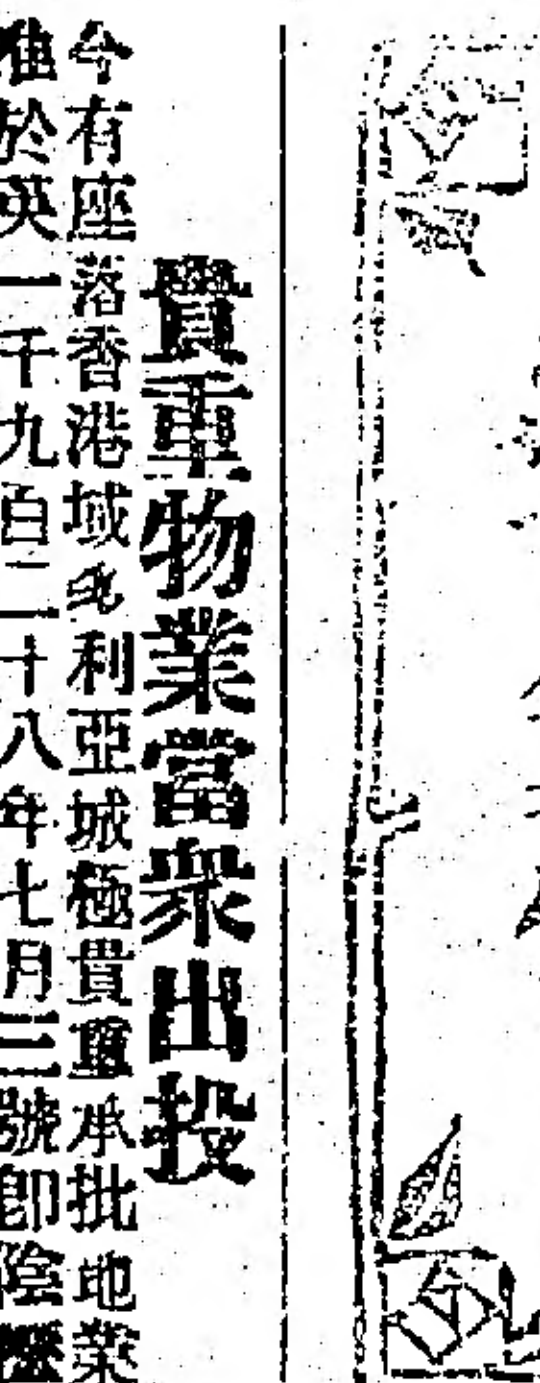 貴重物業當衆出投
今有座落香港域多利亞城極貴重承批地業
准於英一千九百二十八年七月三號卽陰曆